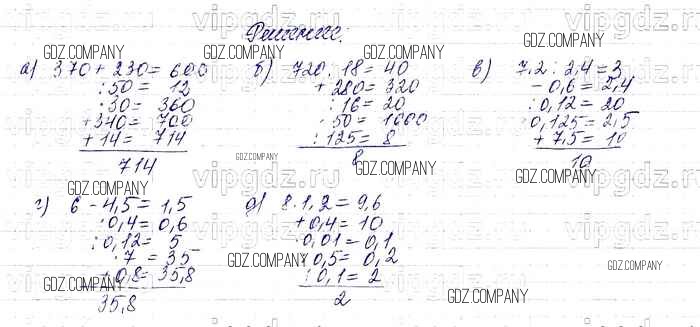 Решение.
а) 370 + 230 = 600
: 50 = 12
· 30 = 360
+ 340 = 700
+ 14 = 714
714
б) 720 : 18 = 40
+ 280 = 320
: 16 = 20
· 50 = 1000
: 125 = 8
8
в) 7,2 : 2,4 = 3
- 0,6 = 2,4
: 0,12 = 20
· 0,125 = 2,5
+ 7,5 = 10
10
г) 6 - 4,5 = 1,5
· 0,4 = 0,6
: 0,12 = 5
· 7 = 35
+ 0,8 = 35,8
35,8
д) 8 · 1,2 = 9,6
+ 0,4 = 10
· 0,01 = 0,1
: 0,5 = 0,2
: 0,1 = 2
2
GDZ.COMPANY
GDZ.COMPANY
GDZ.COMPANY
GDZ.COMPANY
GDZ.COMPANY
GDZ.COMPANY
GDZ.COMPANY
GDZ.COMPANY
GDZ.COMPANY
GDZ.COMPANY
GDZ.COMPANY
GDZ.COMPANY
vipgdz.ru
vipgdz.ru
vipgdz.ru
vipgdz.ru